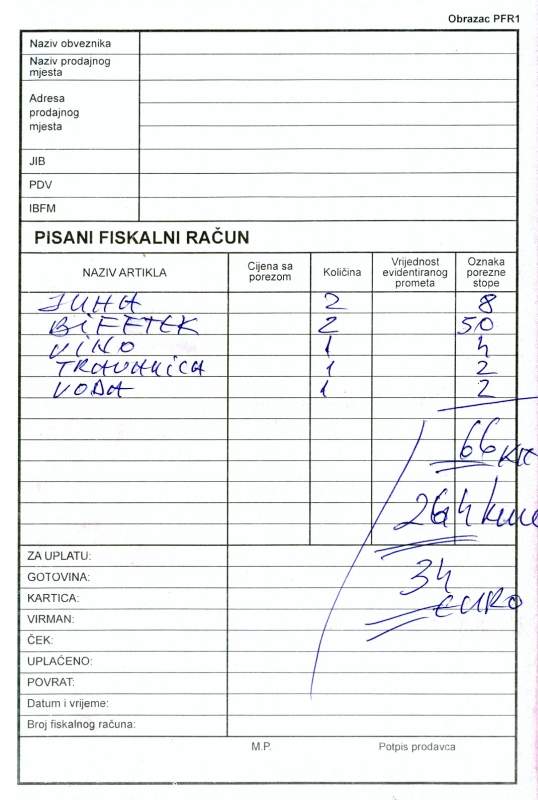 Obrazac PFR1
Naziv obveznika
Naziv prodajnog
mjesta
Adresa
prodajnog
mjesta
JIB
PDV
IBFM
PISANI FISKALNI RAČUN
NAZIV ARTIKLA Cijena sa porezom Količina Vrijednost evidentiranog prometa Oznaka porezne stope
JUHA 2 8
BIFETEK 2 50
VINO 1 4
TRAVARICA 1 2
VODA 1 2
66 KM
264 kune
34
EURO
ZA UPLATU:
GOTOVINA:
KARTICA:
VIRMAN:
ČEK:
UPLAĆENO:
POVRAT:
Datum i vrijeme:
Broj fiskalnog računa:
M.P. Potpis prodavca